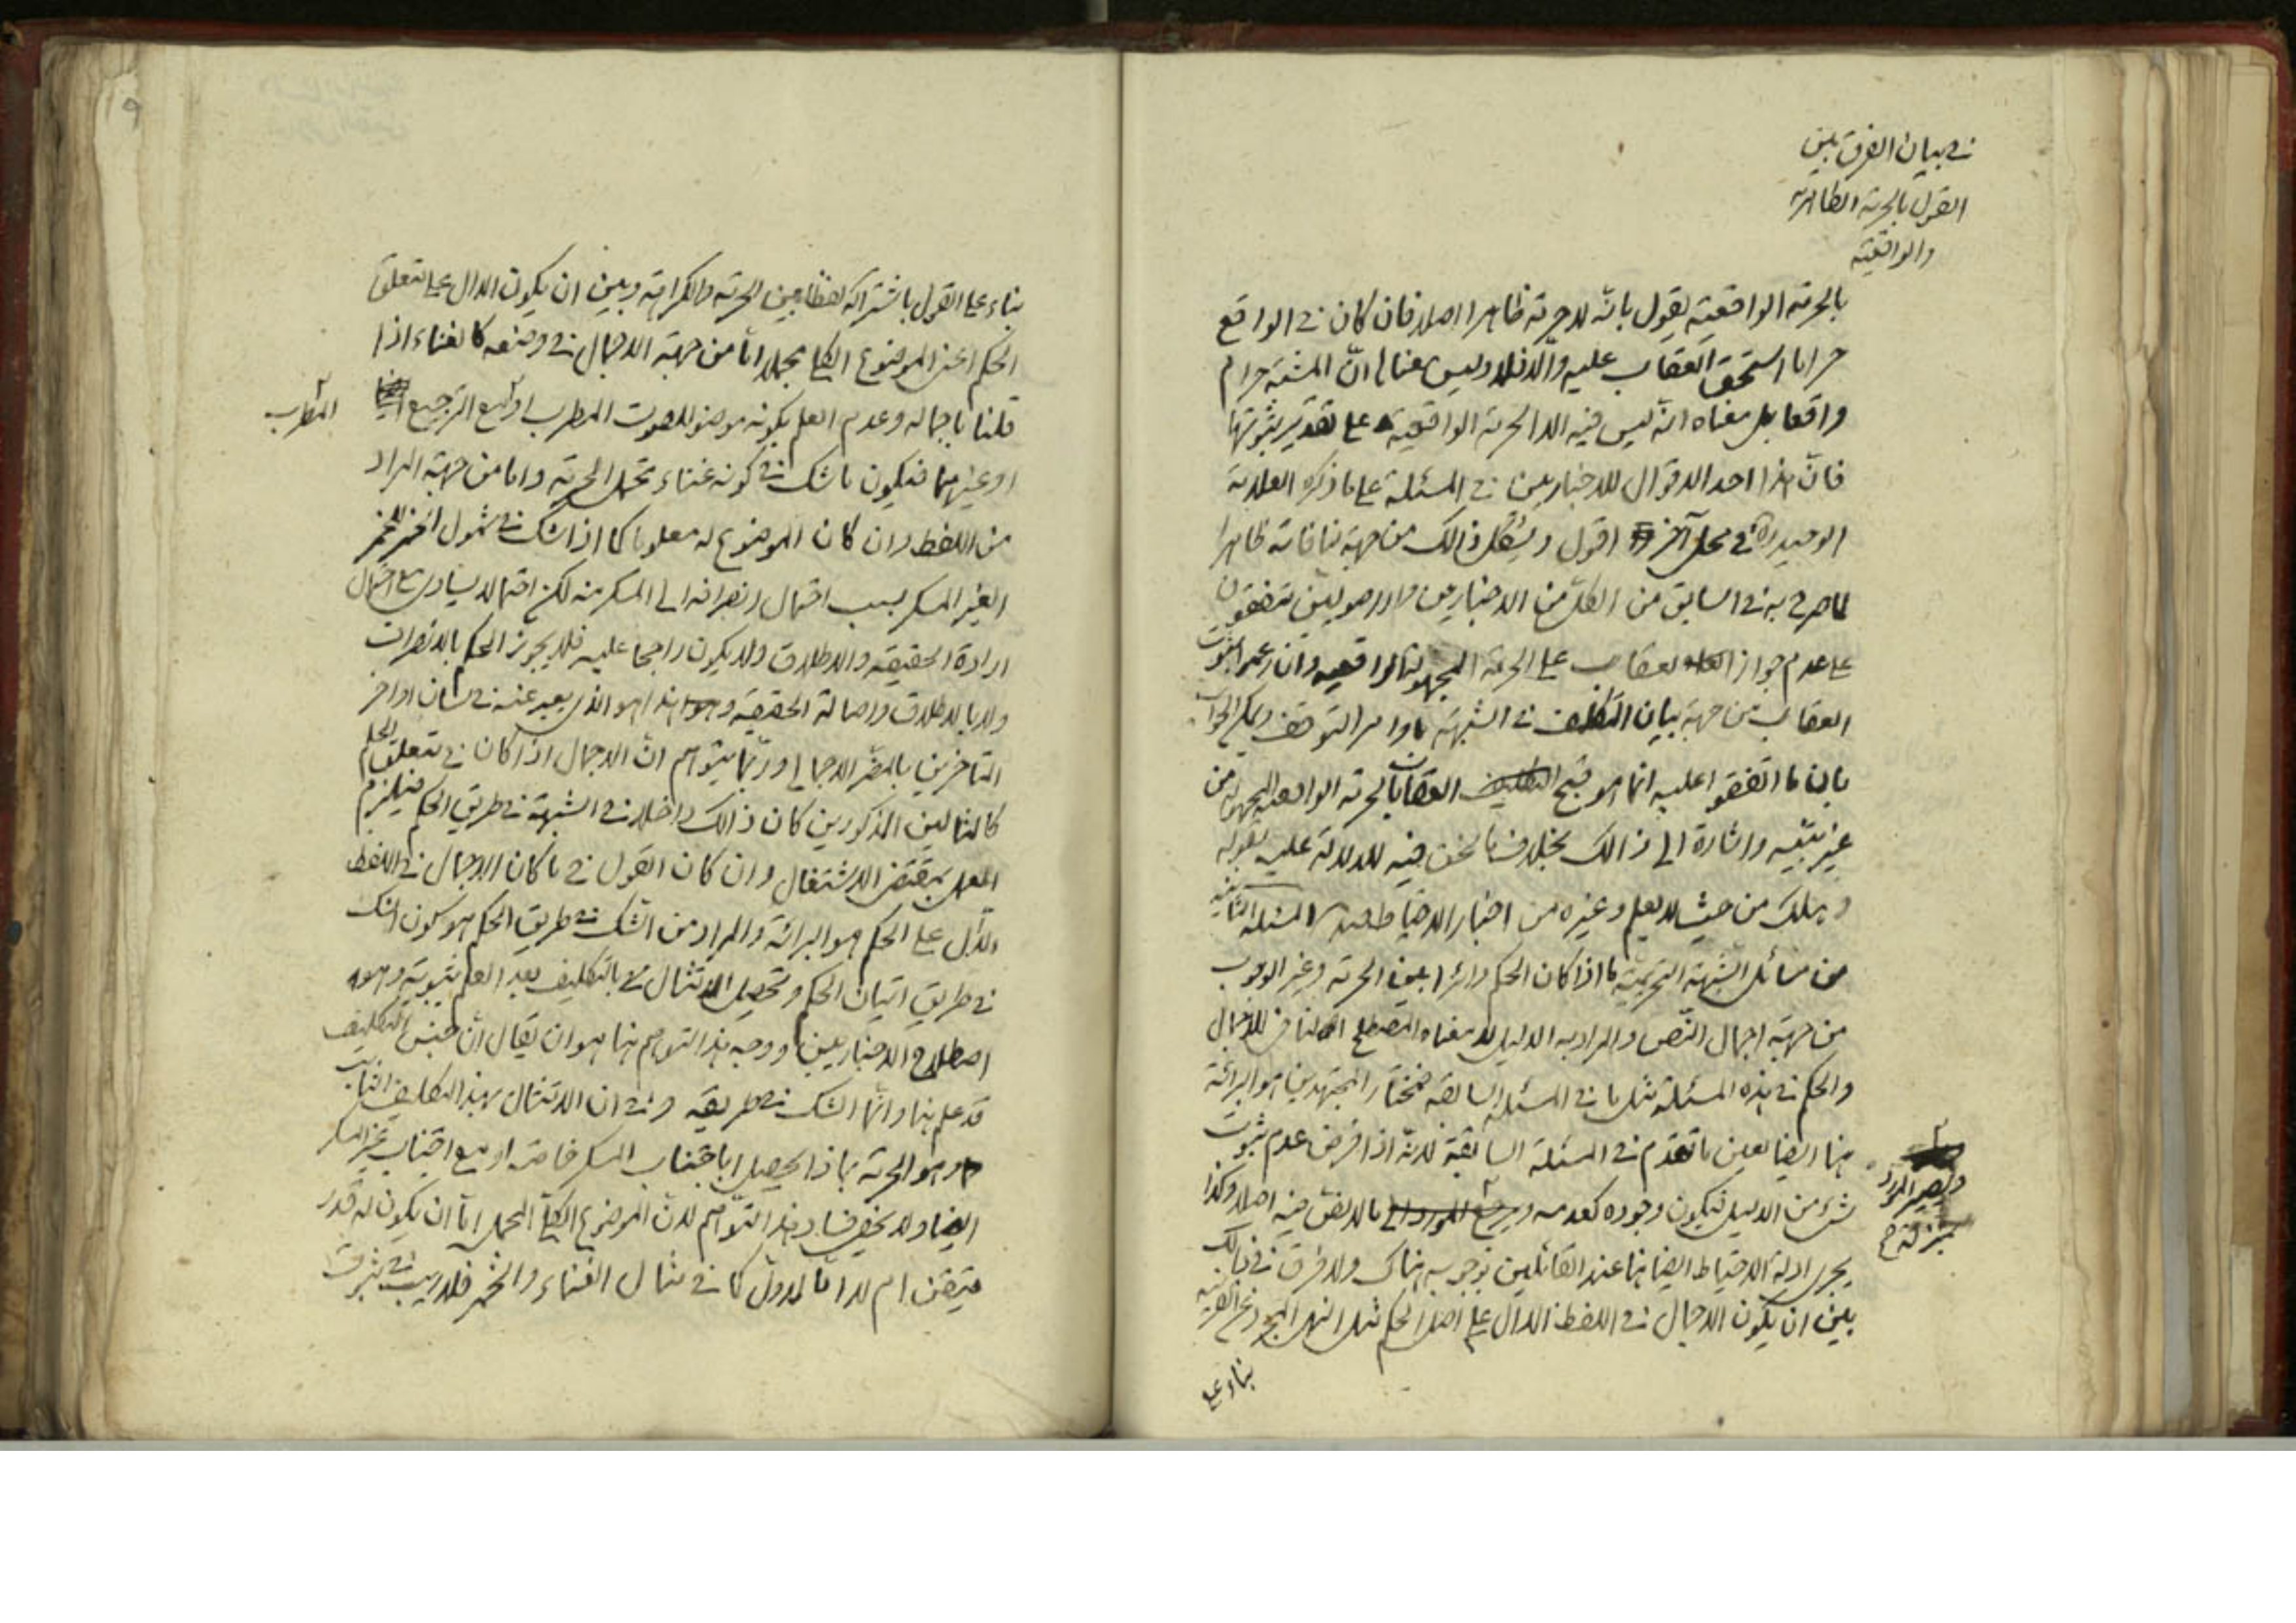 في بيان الفرق بين
القول بالحرمة الظاهرية
والواقعية
بالحرمة الواقعية يقول بانه لا حرمة ظاهرا اصلا فان كان في الواقع
حراما استحق العقاب عليه والا فلا وليس معناها ان المشتبه حرام
واقعا بل معناه انه ليس فيه الا الحرمة الواقعية على تقدير ثبوتها
فان هذا احد الاقوال للاخباريين في المسئلة على ما ذكره العلامة
الوحيد ره في محل آخر اقول ويشكل ذالك من جهة منافاته ظاهرا
لما صرح به في السابق من الكل من الاخباريين والاصوليين متفقون
على عدم جواز العقاب على الحرمة المجهولة الواقعية وان زعم ثبوت
العقاب من جهة بيان التكليف في الشبهة باوامر التوقف ويمكن الجواب
بان ما اتفقوا عليه انما هو قبح العقاب بالحرمة الواقعية المجهولة من
غير تنبيه واشارة الى ذالك بخلاف ما نحن فيه للدلالة عليه بقوله
وهلك من حيث لا يعلم وغيره من اخبار الاحتياط المسئلة الثانية
من مسائل الشبهة التحريمية ما اذا كان الحكم دائرا بين الحرمة وغير الوجوب
من جهة اجمال النص والمراد به الدليل لا معناه المصطلح المنافي للاجمال
والحكم في هذه المسئلة مثل ما في المسئلة السابقة فمختار المجتهدين هو البرائة
هنا ايضا بعين ما تقدم في المسئلة السابقة لانه اذا فرض عدم ثبوت
شئ من الدليل فيكون وجوده كعدمه ما لا نص فيه اصلا وكذا
ويصير المورد
بمنزلة
يجري ادلة الاحتياط ايضا هنا عند القائلين بوجوبه هناك ولا فرق في ذالك
بين ان يكون الاجمال في اللفظ الدال على اصل الحكم مثل النهي المجرد عن القرينة
بناء على
بناء على القول باشتراكه لفظا بين الحرمة والكراهة وبين ان يكون الدال على متعلق
الحكم اعني الموضوع الكلي مجملا اما من جهة الاجمال في وضعه كالغناء اذا
قلنا باجماله وعدم العلم بكونه موضوعا للصوت المطرب او مع الترجيع
المطرب
او غيرهما فيكون ما شك في كونه غناء محتمل الحرمة واما من جهة المراد
من اللفظ وان كان الموضوع له معلوما كما اذا شك في شمول الخمر للخمر
الغير المسكر بسبب احتمال انصرافه الى المسكر منه لكن احتمالا يساوي مع احتمال
ارادة الحقيقة والاطلاق ولا يكون راجحا عليه فلا يجوز الحكم بالانصراف
ولا بالاطلاق واصالة الحقيقة وهذا هو الذي يعبر عنه في لسان اواخر
المتاخرين بالمضر الاجمالي وربما يتوهم ان الاجمال اذا كان في متعلق الحكم
كالمثالين المذكورين كان ذالك داخلا في الشبهة في طريق الحكم فيلزم
العمل بمقتضى الاشتغال وان كان القول في ما كان الاجمال في اللفظ
الدال على الحكم هو البرائة والمراد من الشك في طريق الحكم هو كون الشك
في طريق اتيان الحكم وتحصيل الامتثال بالتكليف بعد العلم بثبوته وهو
اصطلاح الاخباريين ووجه هذا التوهم هنا هو ان يقال ان جنس التكليف
قد علم هنا وانما الشك في طريقه وفي ان الامتثال بهذا التكليف الثابت
وهو الحرمة بماذا يحصل اباجتناب المسكر خاصة او مع اجتناب غير المسكر
ايضا ولا يخفى فساد هذا التوهم لان الموضوع الكلي المجمل اما ان يكون له قدر
متيقن ام لا اما الاول كما في مثال الغناء والخمر فلا ريب في